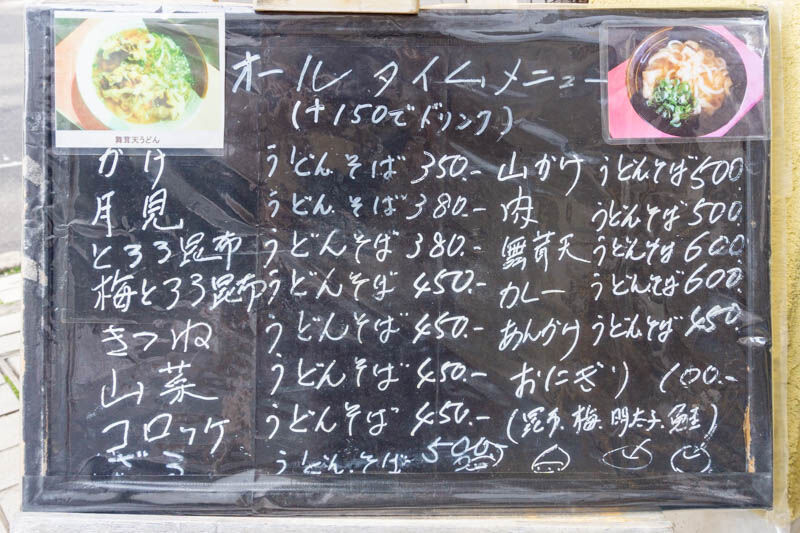 オールタイムメニュー
(+150でドリンク)
舞茸天うどん
かけ うどん.そば 350.-
月見 うどん.そば 380.-
とろろ昆布 うどんそば 380.-
梅とろろ昆布 うどんそば 450.-
きつね うどんそば 450.-
山菜 うどんそば 450.-
コロッケ うどんそば 450.-
ざる うどん.そば 500
山かけ うどんそば 500
肉 うどんそば 500
舞茸天 うどんそば 600
カレー うどんそば 600
あんかけ うどんそば 450.
おにぎり 100.-
(昆布.梅.明太子.鮭)